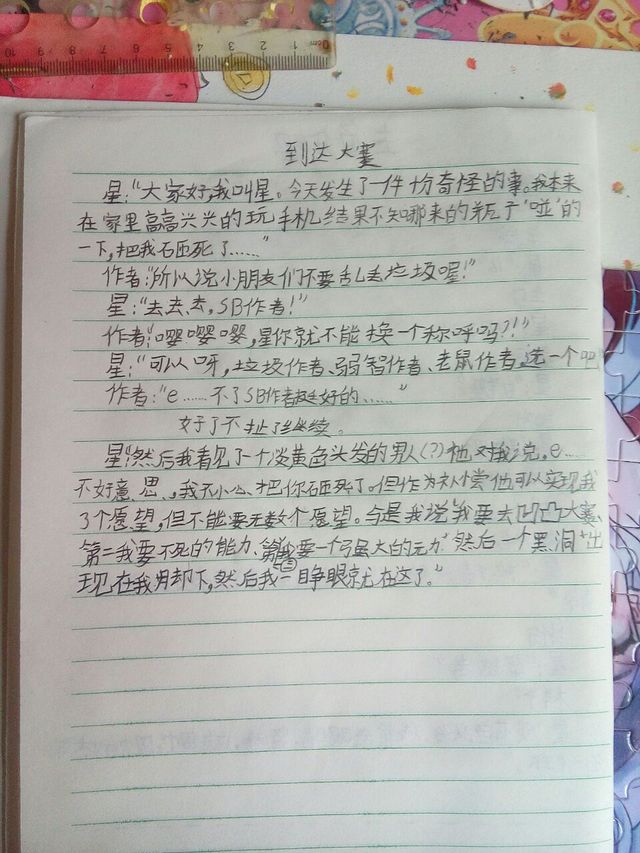 到达大赛
星:“大家好,我叫星。今天发生了一件十分奇怪的事。我本来
在家里高高兴兴的玩手机,结果不知哪来的瓶子“啦”的
一下,把我石匝死了……”
作者:“所以说小朋友们不要乱丢垃圾喔!”
星:“去去去,SB作者!”
作者:“嘤嘤嘤,星你就不能换一个称呼吗?!”
星:“可以呀,垃圾作者、弱智作者、老鼠作者,选一个吧
作者:“e……不了SB作者挺好的……”
好了不扯了继续。
星:“然后我看见了一个淡黄色头发的男人(?)他对我说。e…
不好意思,我不小心把你石匝死了。但作为补偿他可以实现我
3个愿望,但不能要无数个愿望。于是我说“我要去凹凸大赛,
第二我要不死的能力、第三我要一个强大的元力”然后一个黑洞出
现在我脚下,然后我一睁眼就在这了。”
0cm 1 2 3 4 5 6 7 8 9 10